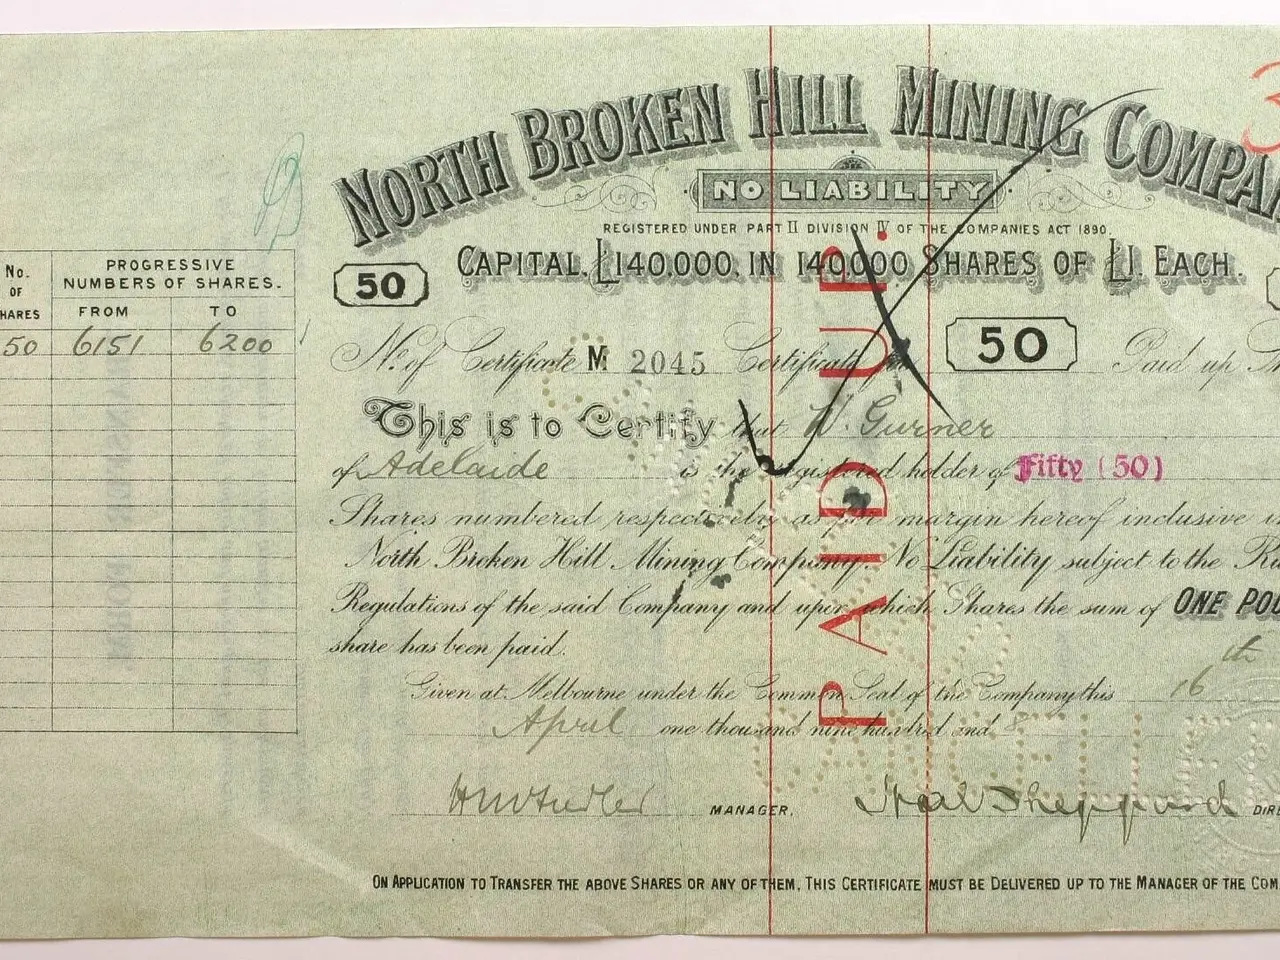 NORTH BROKEN HILL MINING COMPA
NO LIABILITY
REGISTERED UNDER PART II DIVISION IV OF THE COMPANIES ACT 1890.
CAPITAL, £140,000, IN 140,000 SHARES OF £1. EACH.
50
No. OF HARES
PROGRESSIVE NUMBERS OF SHARES.
FROM TO
50 6151 6200
No. of Certificate M 2045 Certificate for 50 Paid up
This is to Certify that W. Gurner
of Adelaide is the registered holder of Fifty (50)
Shares numbered respectively as per margin hereof inclusive
North Broken Hill Mining Company. No Liability subject to the
Regulations of the said Company and upon which Shares the sum of ONE
share has been paid.
Given at Melbourne under the Common Seal of the Company this 16th
April one thousand nine hundred and 8
MANAGER.
Sheppard
PAID UP.
CANCELLED
ON APPLICATION TO TRANSFER THE ABOVE SHARES OR ANY OF THEM, THIS CERTIFICATE MUST BE DELIVERED UP TO THE MANAGER OF THE COM